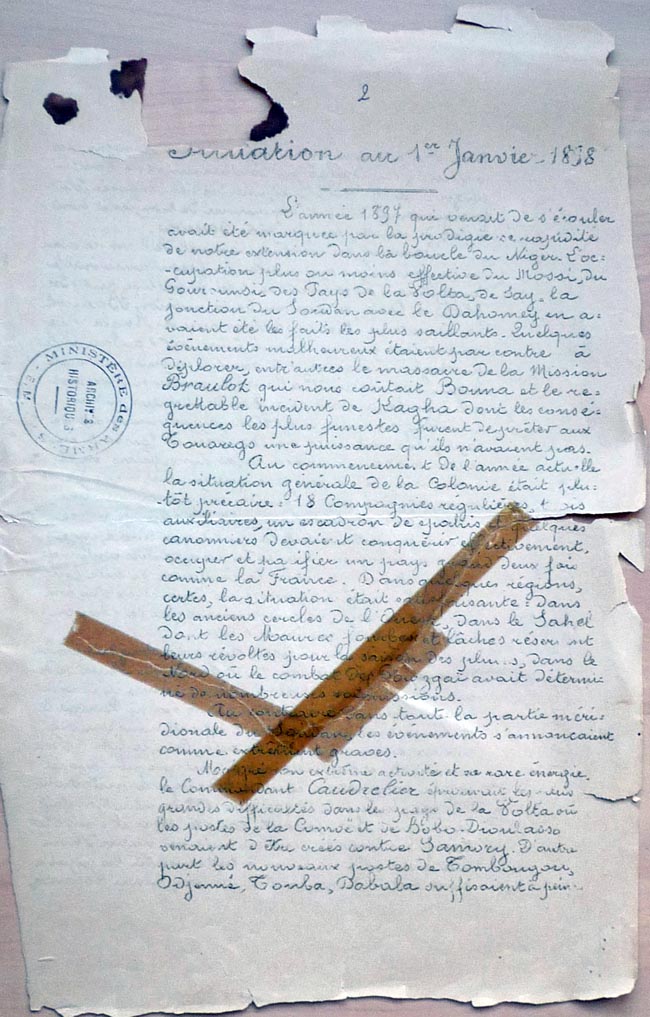 2
Situation au 1er Janvier 1898
L'année 1897 qui venait de s'écouler
avait été marquée par la prodigieuse rapidité
de notre extension dans la boucle du Niger. L'oc-
-cupation plus ou moins effective du Mossi, du
Gourounsi, des Pays de la Volta, de Say, la
jonction du Soudan avec le Dahomey en a-
vaient été les faits les plus saillants. Quelques
évènements malheureux étaient par contre à
déplorer, entr'autres le massacre de la Mission
Braulot qui nous coûtait Bouna et le re-
grettable incident de Kagha dont les consé-
quences les plus funestes furent de prêter aux
Touaregs une puissance qu'ils n'avaient pas.
Au commencement de l'année actuelle
la situation générale de la Colonie était plu-
-tôt précaire: 18 Compagnies régulières,
auxiliaires, un escadron de spahis et quelques
canonniers devaient conquérir effectivement,
occuper et pacifier un pays grand deux fois
comme la France. Dans quelques régions,
certes, la situation était satisfaisante: dans
les anciens cercles de l'Ouest, dans le Sahel
dont les Maures fourbes et lâches réservent
leurs révoltes pour la saison des pluies, dans le
Nord où le combat de avait détermi-
né de nombreuses soumissions.
Au contraire dans toute la partie méri-
dionale du Soudan, les évènements s'annonçaient
comme extrêmement graves.
Malgré son extrême activité et sa rare énergie,
le Commandant Caudrelier éprouvait les
grandes difficultés dans le pays de la Volta où
les postes de la Comoë et de Bobo-Dioulasso
venaient d'être créés contre Samory. D'autre
part les nouveaux postes de Tombougou,
Odjenné, Touba, Dabala suffisaient à peine
MINISTÈRE des ARMÉES
ARCHIVES
HISTORIQUES